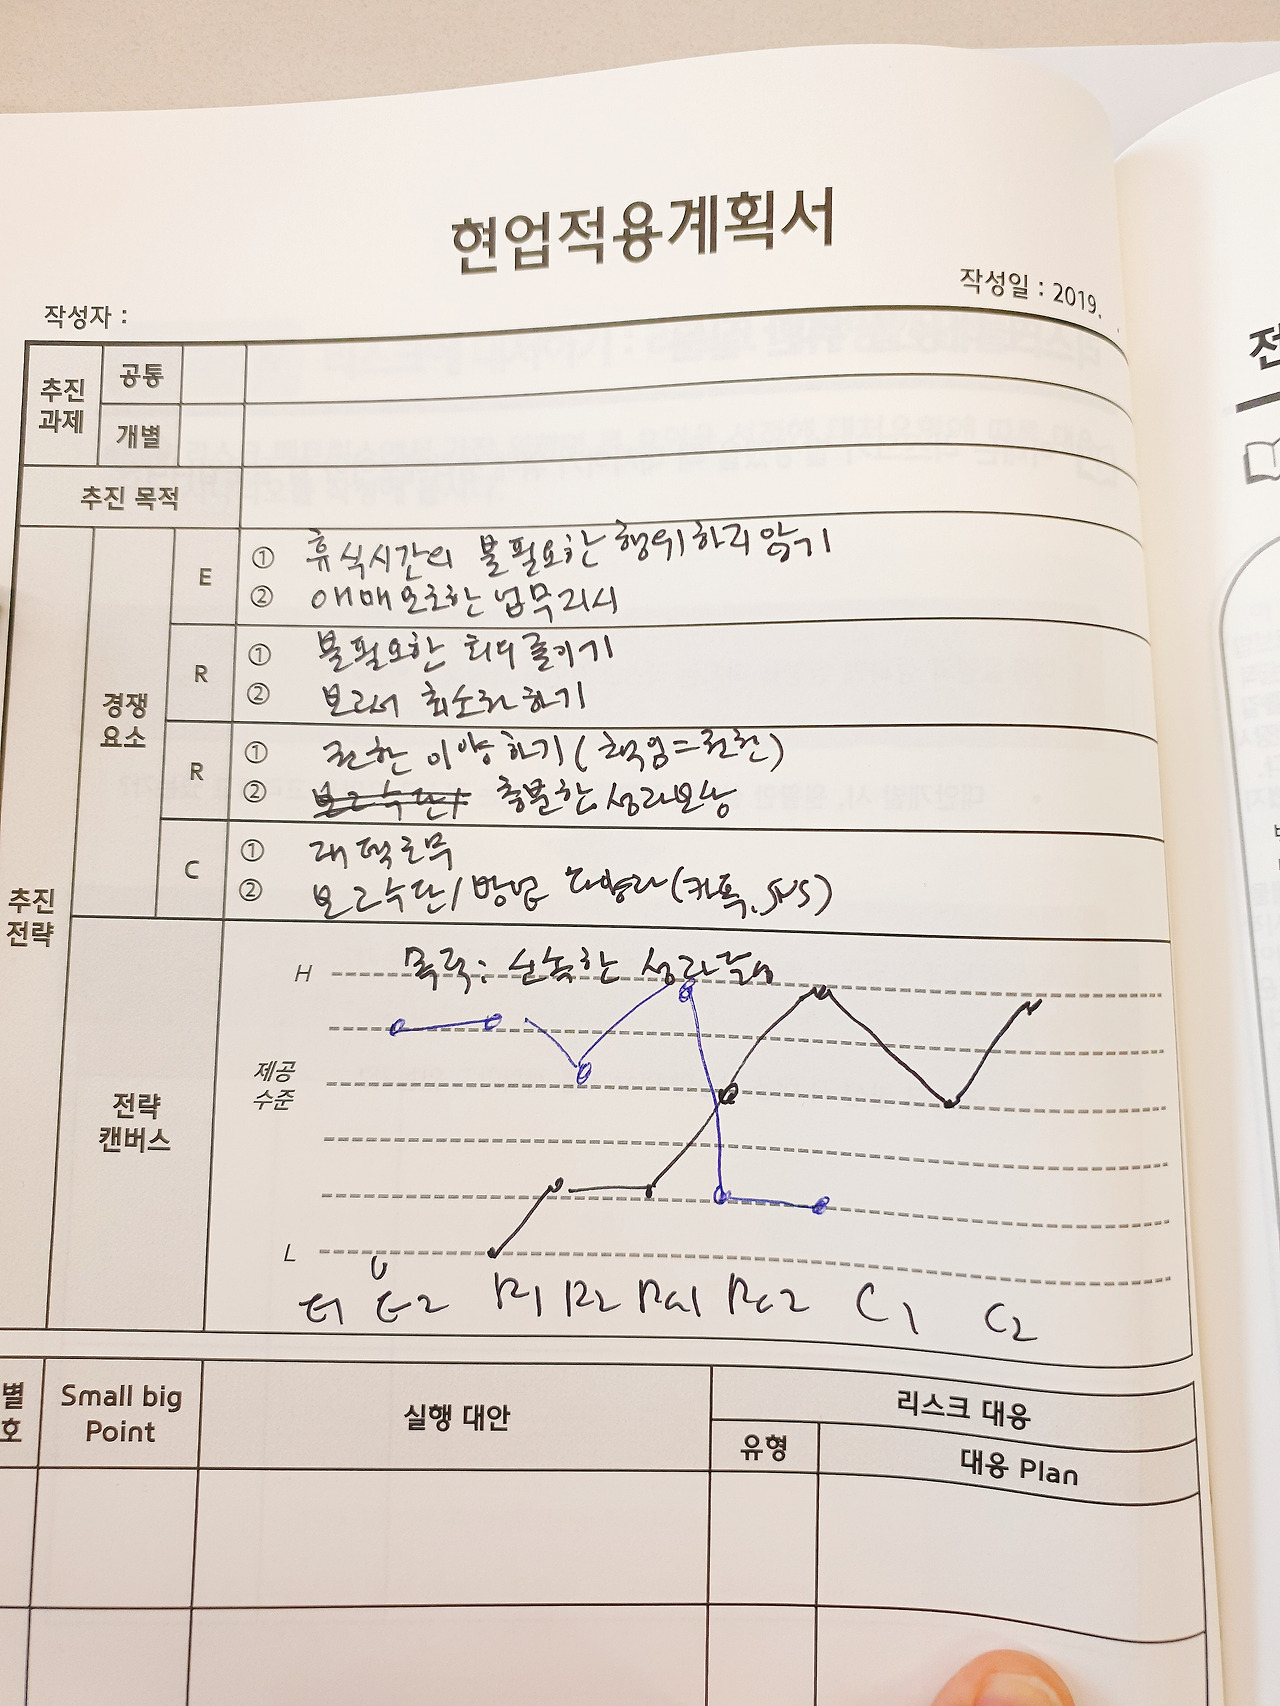 현업적용계획서
작성일 : 2019. .
작성자 :
추진 과제
공통
개별
추진 목적
추진 전략
경쟁 요소
E
① 휴식시간의 불필요한 행위하지않기
② 애매모호한 업무지시
R
① 불필요한 회의줄이기
② 보고서 최소화하기
R
① 권한 이양하기(책임=권한)
② 충분한 성과보상
C
① 재택근무
② 보고수단/방법 다양화(카톡, SNS)
전략 캔버스
목적: 신속한 성과
H
제공 수준
L
E1 E2 R1 R2 Ra1 Ra2 C1 C2
별
호
Small big Point
실행 대안
리스크 대응
유형
대응 Plan
전